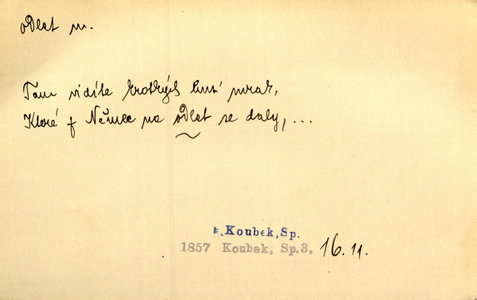 odlet m.
Tam vidíte krotkých hus' mrak,
Které z Němec na odlet se daly, ...
Koubek, Sp.
1857 Koubek, Sp.3. 16.11.